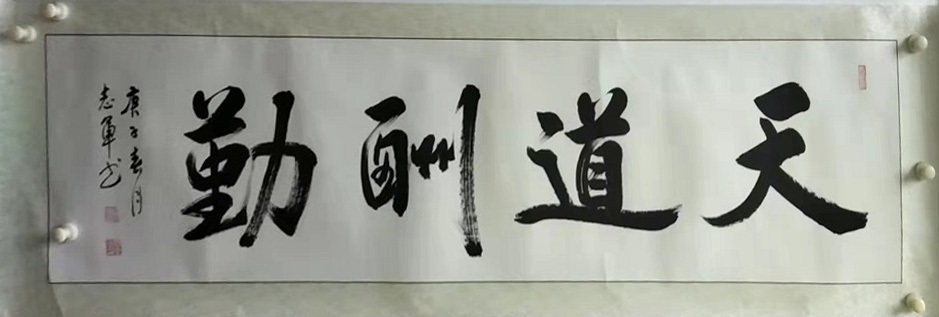 天道酬勤
庚子春月
志军书